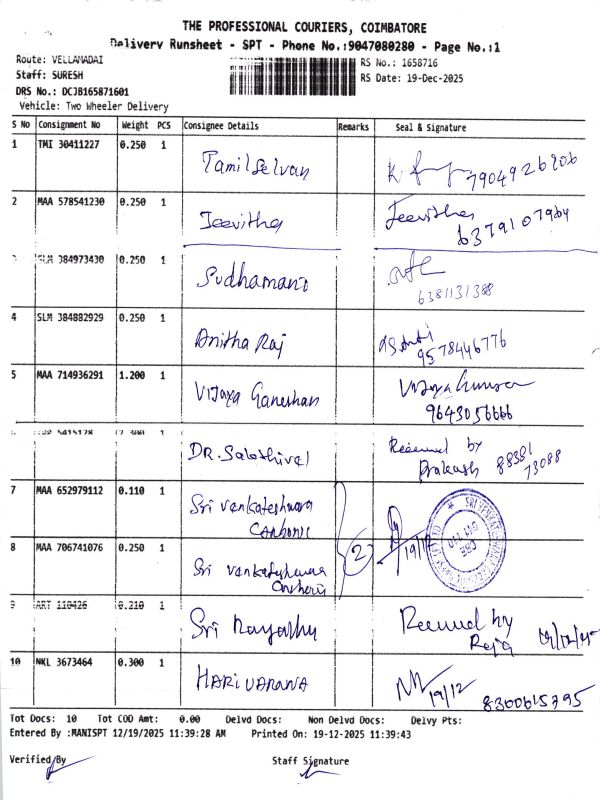 THE PROFESSIONAL COURIERS, COIMBATORE
Delivery Runsheet - SPT - Phone No.:9047080280 - Page No.:1
Route: VELLAMADAI
RS No.: 1658716
Staff: SURESH
RS Date: 19-Dec-2025
DRS No.: DCJB165871601
Vehicle: Two Wheeler Delivery
S No Consignment No Weight PCS Consignee Details Remarks Seal & Signature
1 TMI 30411227 0.250 1
Tamilselvan 7904926206
2 MAA 578541230 0.250 1
Jeevitha Jeevitha
6379107964
SLM 384973430 0.250 1
Sudhamani
6381131388
4 SLM 384882929 0.250 1
Anitha Raj
9578446776
5 MAA 714936291 1.200 1
Vijaya Ganeshan
9643056666
5415128 1
DR. Sakthivel Received by
Prakash 88381
73088
7 MAA 652979112 0.110 1
Sri Venkateshwara
Carbonic
8 MAA 706741076 0.250 1
2 19/12
Sri Venkateshwara
9 ART 110426 0.210 1
Sri Received by
Raja
10 NKL 3673464 0.300 1
HARIVARANA 19/12
8300615795
Tot Docs: 10 Tot COD Amt: 0.00 Delvd Docs: Non Delvd Docs: Delvy Pts:
Entered By :MANISPT 12/19/2025 11:39:28 AM Printed On: 19-12-2025 11:39:43
Verified By Staff Signature